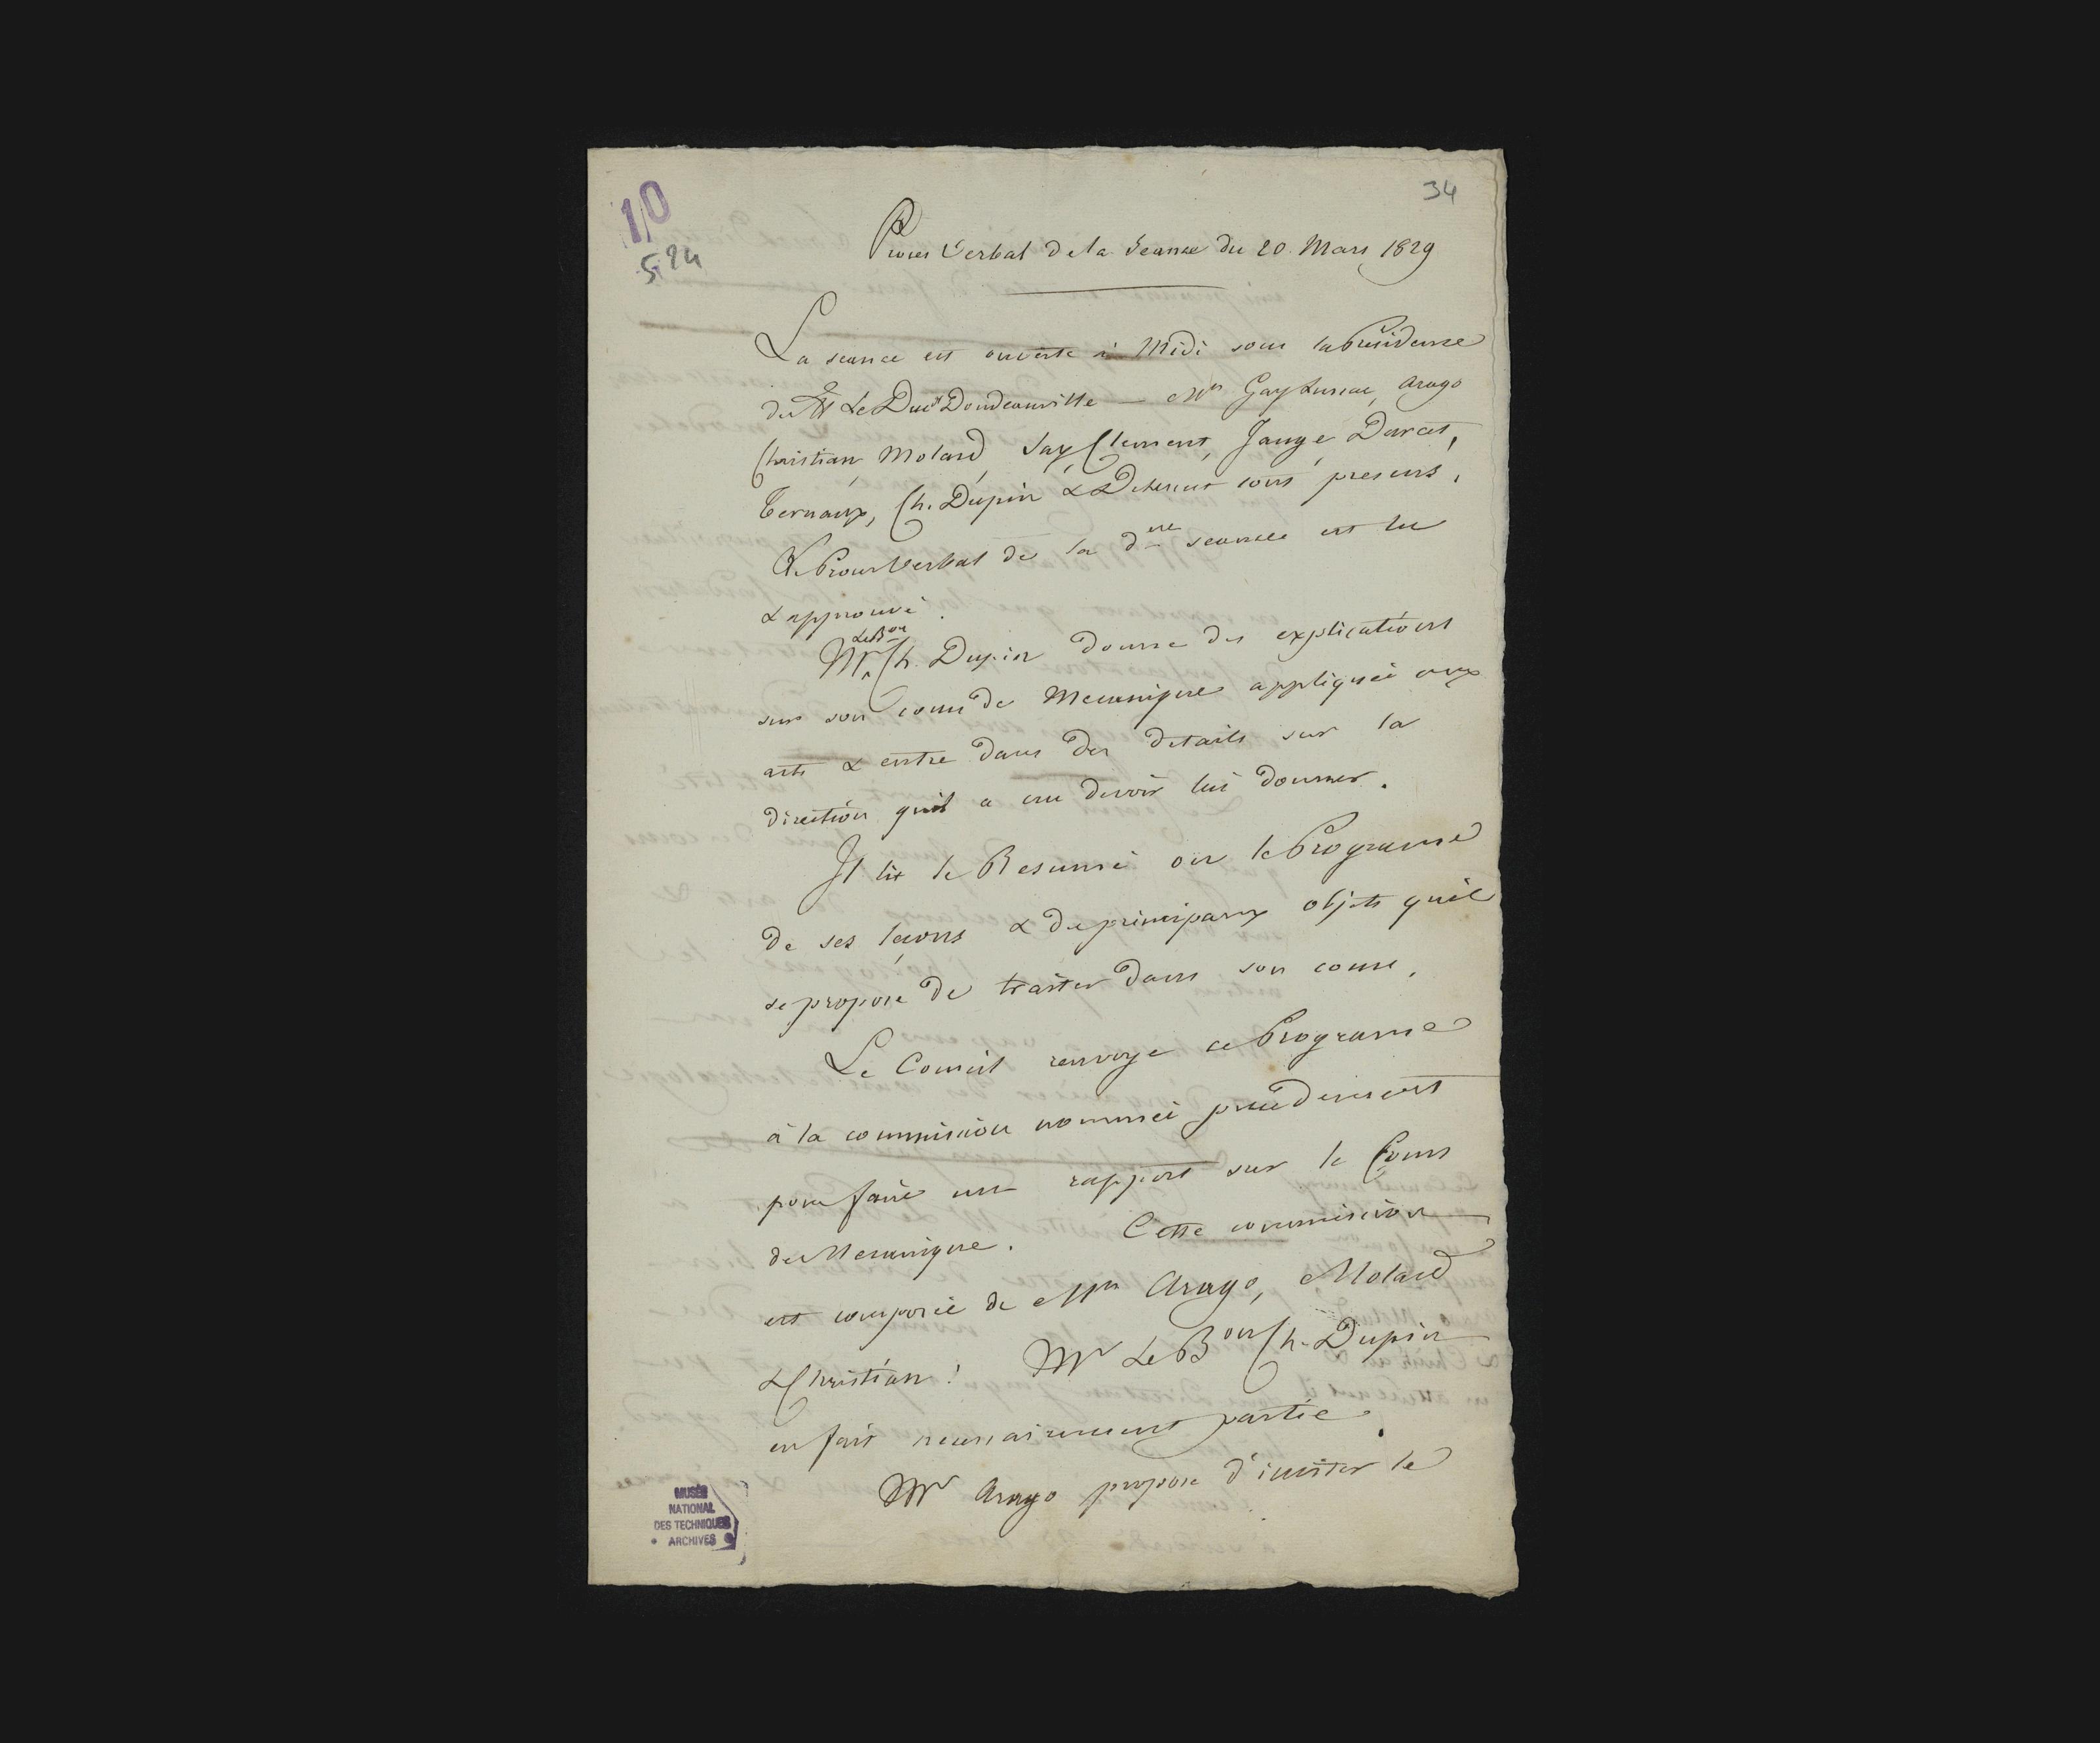 10
524
34
Proces Verbal de la Seance du 20 Mars 1829
La seance est ouverte à Midi sous la Présidence
de M Le Duc d Doudeauville — Mrs Gay Lussac, Arago
Christian, Molard, Say, Clement, Jauge, Darcet,
Ternaux, Ch. Dupin & sont presens.
Le Proces Verbal de la dre seance est lu
& approuvé.
Mr Le Bon Ch. Dupin donne des explications
sur son cours de Mecanique appliquée aux
arts & entre dans des details sur la
direction qu'il a cru devoir lui donner.
Il lit le Resumé ou le Programe
de ses leçons & des principaux objets qu'il
se propose de traiter dans son cours.
Le Conseil renvoye ce Programe
à la commission nommée precedemment
pour faire un rapport sur le Cours
de Mecanique. Cette commission
est composée de Mrs Arago, Molard
& Christian. Mr Le Bon Ch. Dupin
en fait necessairement partie.
Mr Arago propose d'inviter le
MUSÉE
NATIONAL
DES TECHNIQUES
• ARCHIVES •